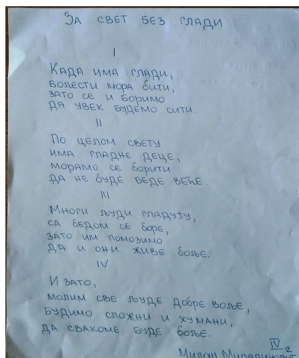 За свет без глади
I
Када има глади,
болести мора бити,
зато се и боримо
да увек будемо сити.
II
По целом свету
има гладне деце,
морамо се борити
да не буде беде веће.
III
Многи људи гладују,
са бедом се боре,
зато им помозимо
да и они живе боље.
IV
И зато,
молим све људе добре воље,
будимо сложни и хумани,
да свакоме буде боље.
Милан
IV-2